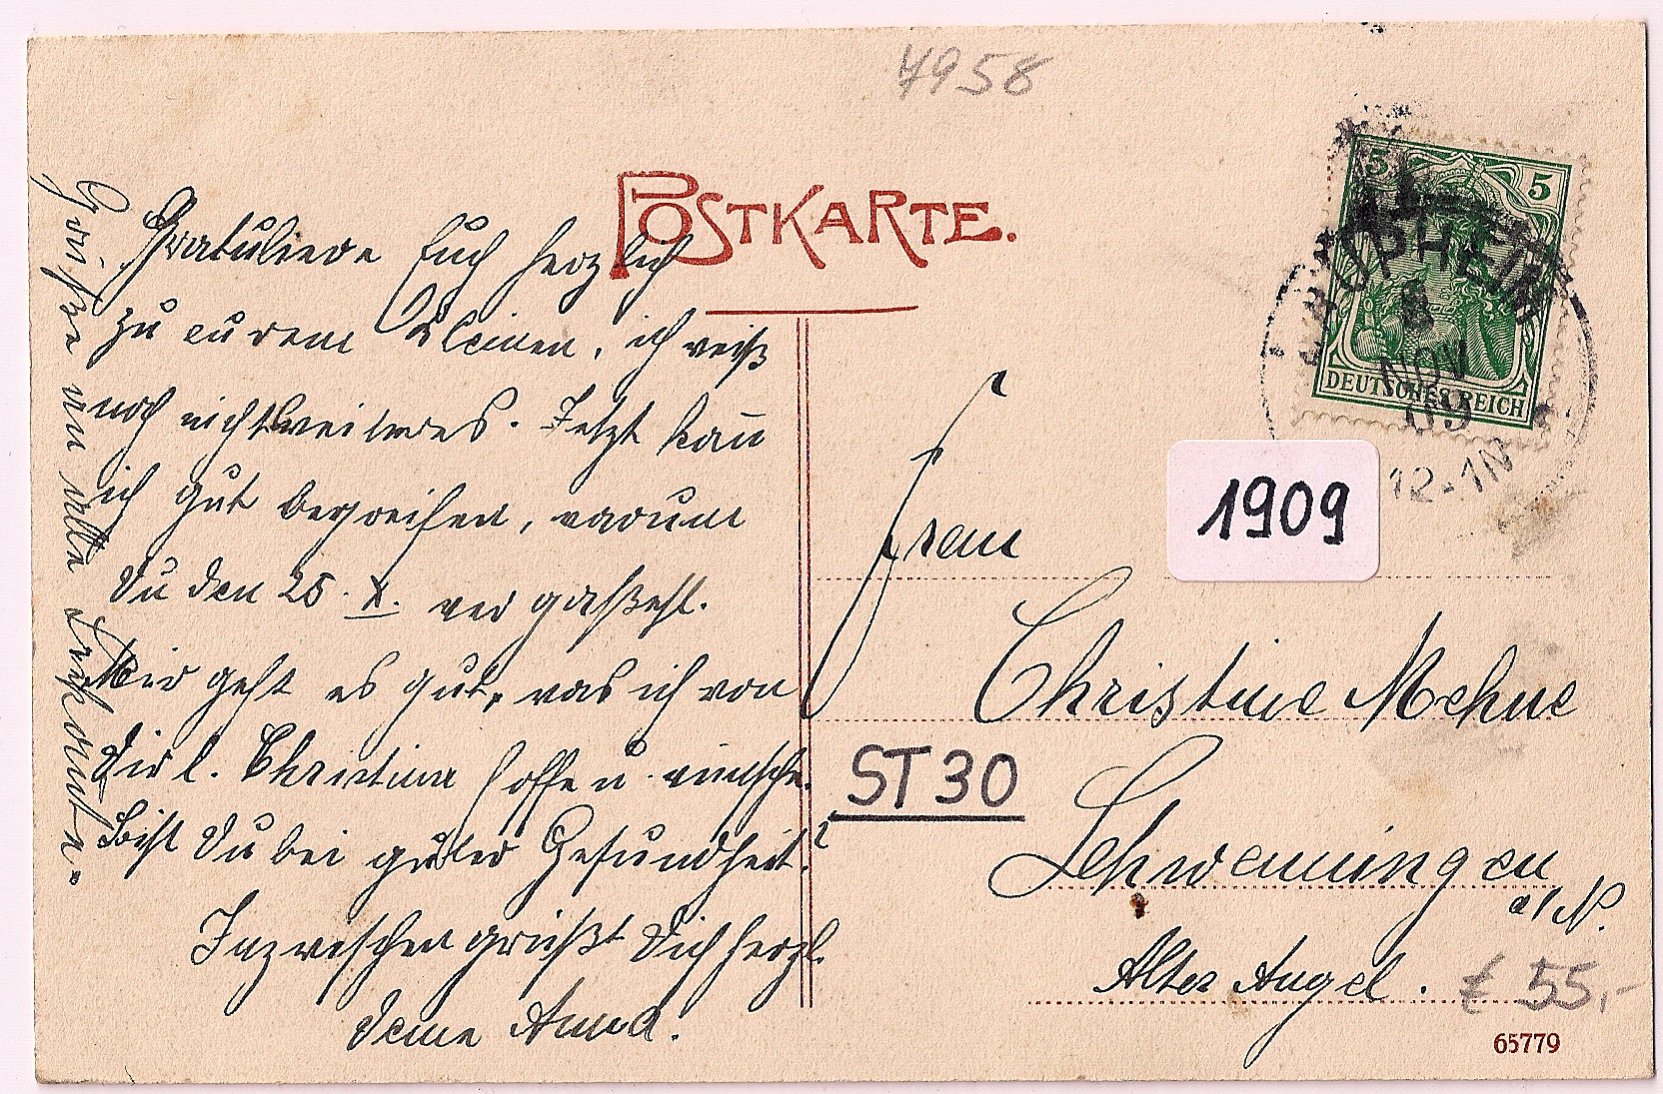 4958
POSTKARTE.
5 5
LAUPHEIM
8
NOV
09
12-1N
DEUTSCHES REICH
1909
Gratuliere Euch herzlich
zu eurem Kleinen, ich weiß
noch nicht weiteres. Jetzt kann
ich gut begreifen, warum
Du den 25. X. vergaßest.
Mir geht es gut, was ich von
Dir l. Christine hoffe u. wünsche.
Bist Du bei guter Gesundheit?
Inzwischen grüßt Dich herzl.
Deine Anna.
Grüße an alle Bekannte.
Frau
Christine Mehne
ST 30
Schwenningen
a/N.
Alter Angel.
€ 55,-
65779